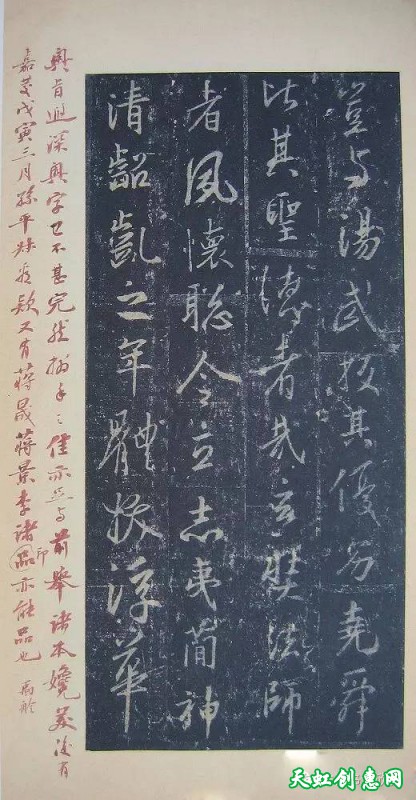 豈与湯武校其優劣堯舜
比其聖德者哉玄奘法師
者夙懷聡令立志夷簡神
清齠齔之年體拔浮華
奧旨遐深奧字已不甚完然搨手之佳亦足与前舉諸本媲美後有
嘉慶戊寅三月孫平叔款又有蔣晟蔣景李諸印亦能品也
天虹创惠网